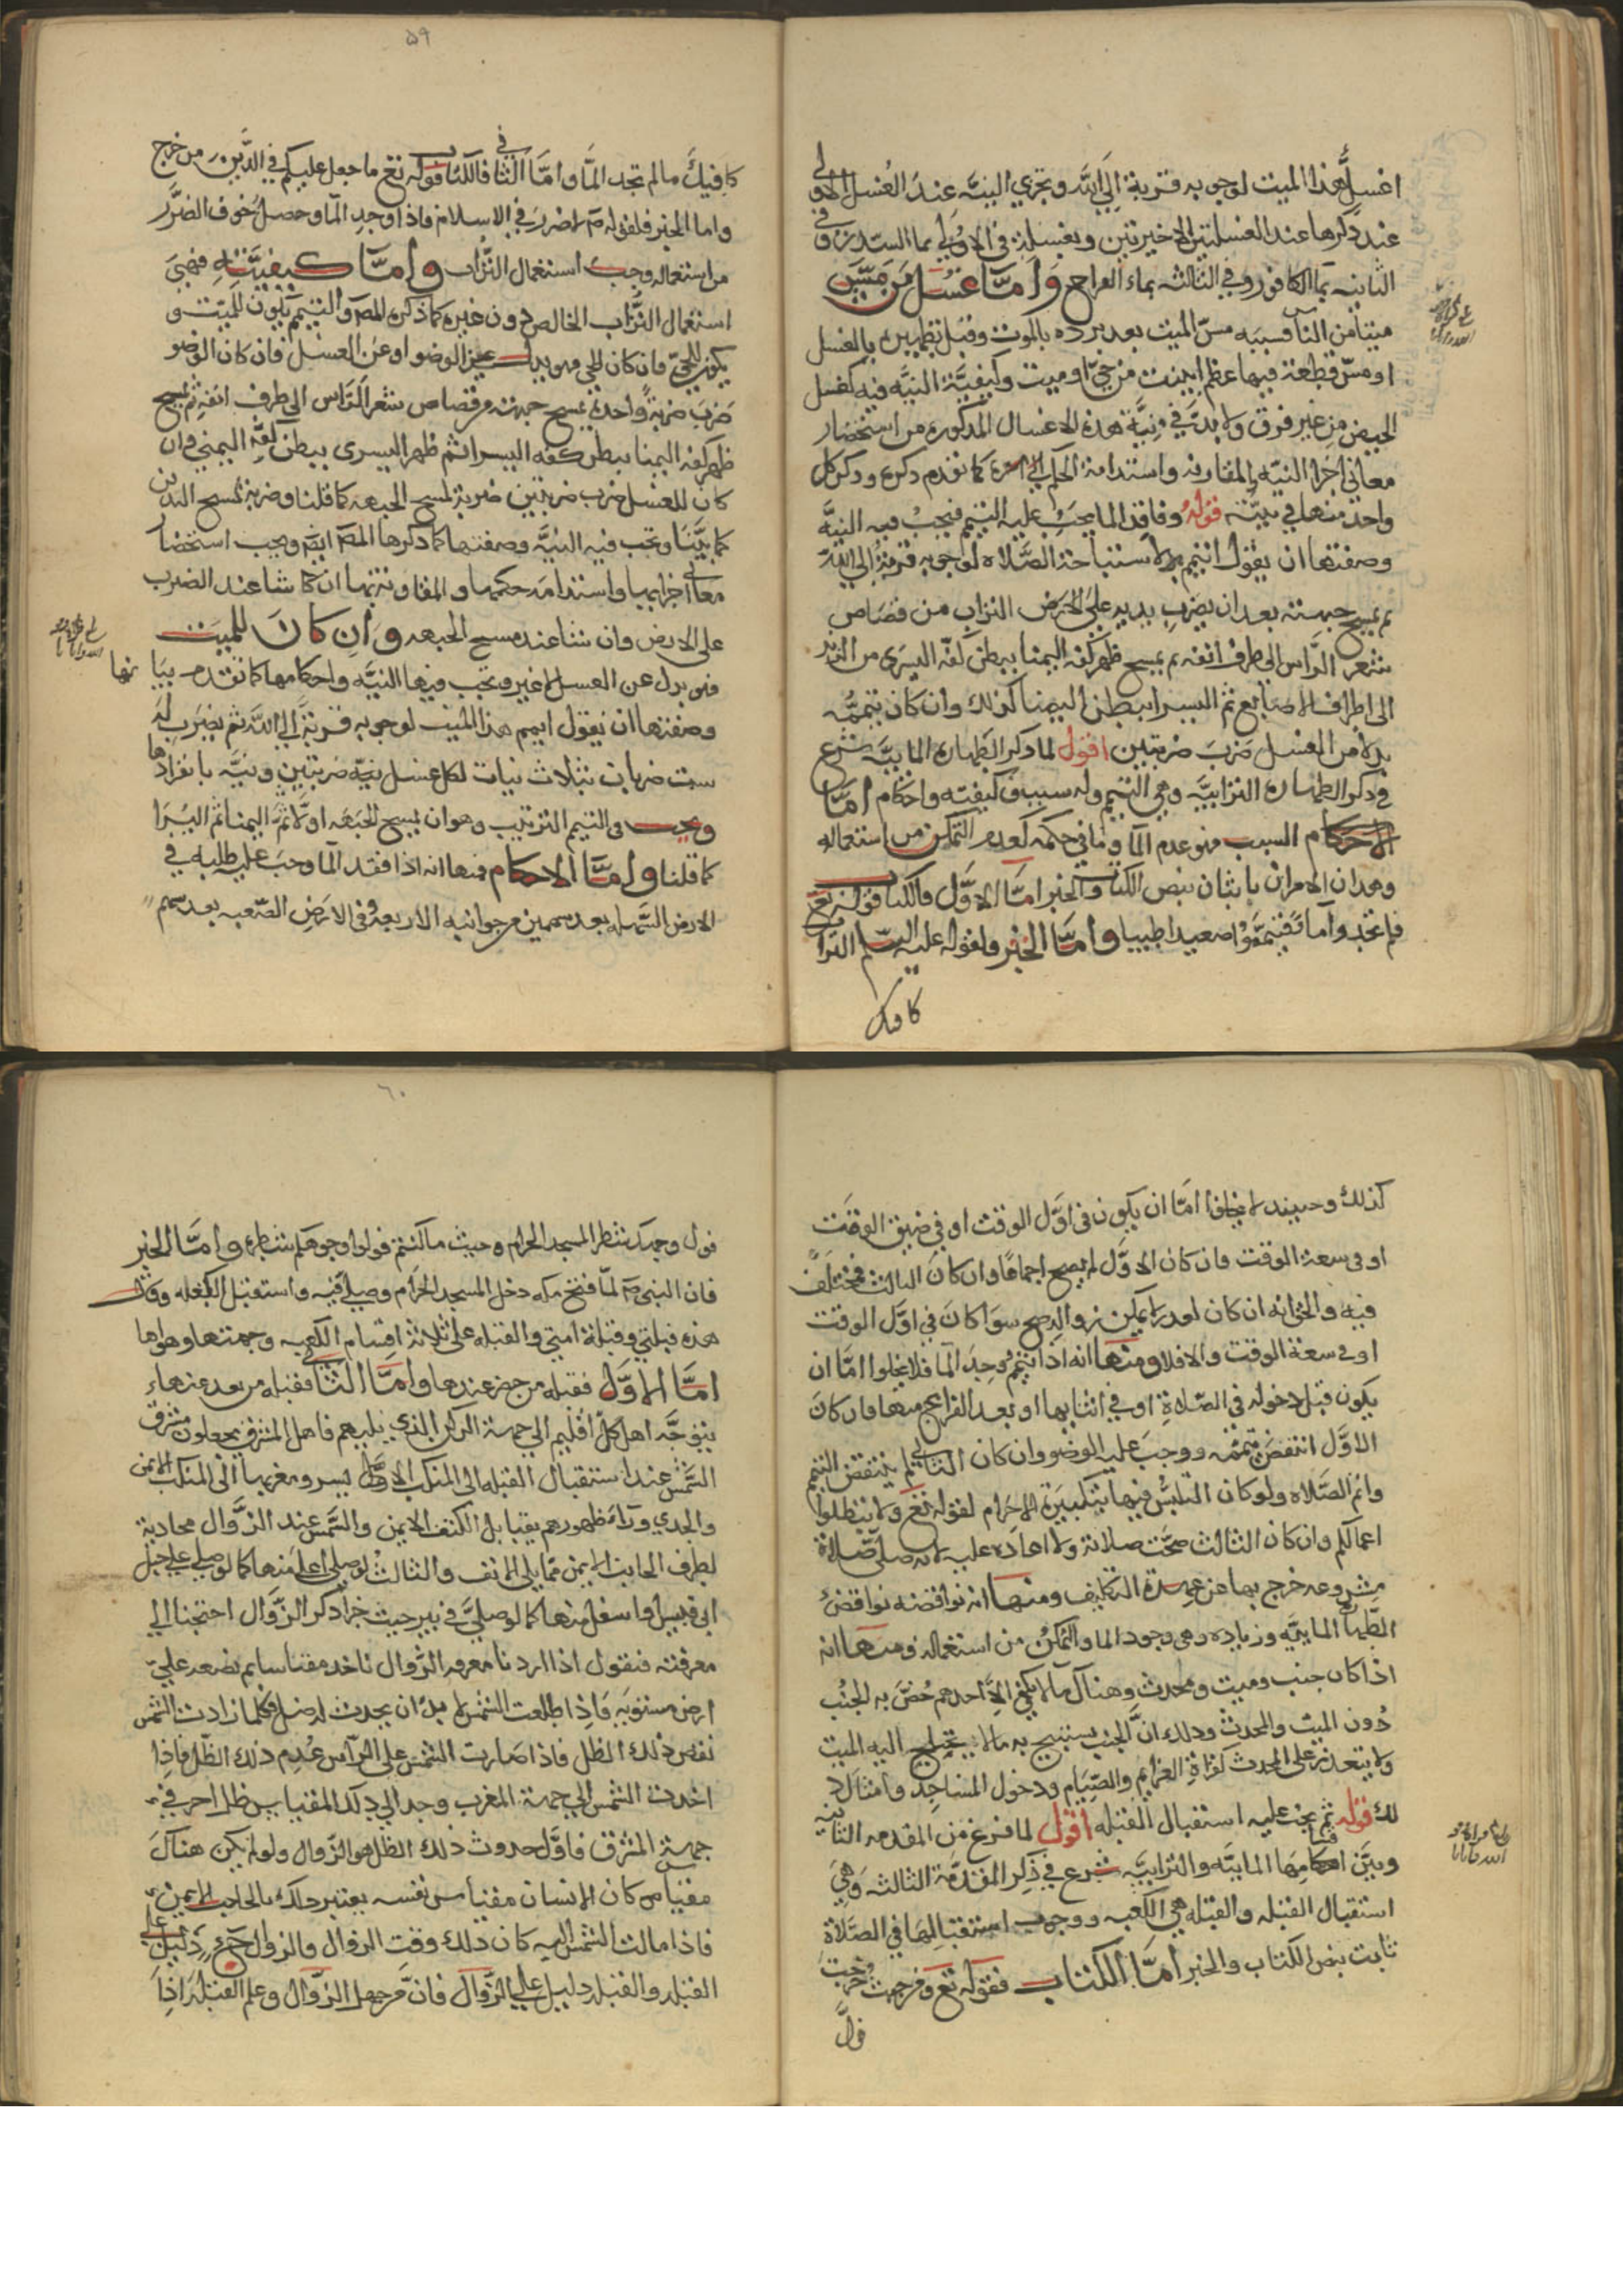 اغسل هذا الميت لوجوبه قربة الي الله وتجزي النيه عند الغسل الاولي
عند ذكرها عند الغسلتين الاخيرتين وبغسله في الاولي بما السدر وفي
الثانيه بما الكافور وفي الثالثه بماء القراح وامّا غسل من مسّ
ميتا من الناس فسببه مسّ الميت بعد برده بالموت وقبل تطهيره بالغسل
او مسّ قطعة فيها عظم ابينت من حيّ او ميت وكيفيّة النيّه فيه كغسل
الحيض من غير فرق ولا بدّ في نيّة هذه الاغسال المذكوره من استحضار
معاني اجزا النيّه والمقارنه واستدامة الحكم الي اخره كما تقدم ذكره وذكر كل
واحد منها في نيّته قوله وفاقد الما يجب عليه التيمم فيجب فيه النيّه
وصفتها ان يقول اتيمم لاستباحة الصّلاه لوجوبه قربة الي الله
ثم يمسح جبهته بعد ان يضرب بيديه علي الارض التراب من قصاص
شعر الرّاس الي طرف انفه ثم يمسح ظهر كفّه اليمنا ببطن كفّه اليسري من الزند
الي اطراف الاصابع ثم اليسرا ببطن اليمنا كذلك وان كان تيممه
بدلا من الغسل ضرب ضربتين اقول لما ذكر الطهاره المائيّه شرع
في ذكر الطهاره الترابيّه وهي التيمم وله سبب وكيفيته واحكام امّا
السبب فهو عدم الما وما في حكمه كعدم التمكن من استعماله
وهذان الامران ثابتان بنص الكتاب والخبر امّا الاوّل فالكتاب قوله تع
فلم تجدوا ماء فتيمّموا صعيدا طيبا وامّا الخبر فلقوله عليه السّلم التراب
كافيك
۵۹
كافيك ما لم تجد الما وامّا الثاني فالكتاب قوله تع ما جعل عليكم في الدّين من حرج
واما الخبر فلقوله ص لا ضرر في الاسلام فاذا وجد الما وحصل خوف الضرر
من استعماله وجب استعمال التراب وامّا كيفيّته فهي
استعمال التّراب الخالص دون غيره كما ذكره المص والتيمم يكون للميّت و
يكون للحيّ فان كان للحي فهو بدل عن الوضو او عن الغسل فان كان الوضو
ضرب ضربة واحدة يمسح جبهته من قصاص شعر الرّاس الي طرف انفه ثم يمسح
ظهر كفه اليمنا ببطن كفه اليسرا ثم ظهر اليسري ببطن كفّه اليمني وان
كان للغسل ضرب ضربتين ضربة لمسح الجبهه كما قلنا وضربة لمسح اليدين
كما بيّنا ويجب فيه النيّه وصفتها كما ذكرها المص ايض ويجب استحضار
معاني اجزايها واستدامة حكمها والمقارنة بها ان شا عند الضرب
علي الارض وان شا عند مسح الجبهه وان كان للميت
فهي بدل عن الغسل لا غير وتجب فيها النيّه واحكامها كما تقدم بيانها
وصفتها ان يقول ايمم هذا الميت لوجوبه قربة الي الله ثم يضرب له
ست ضربات بثلاث نيات لكل غسل نيّه ضربتين ونيّه بانفرادها
ويجب في التيمم الترتيب وهو ان يمسح الجبهه اولا ثم اليمنا ثم اليسرا
كما قلنا وامّا الاحكام فمنها انه اذا فقد الما وجب عليه طلبه في
الارض السّهله بعد سهمين من جوانبه الاربعه وفي الارض الصّعبه بعد سهم
كذلك وحينيذ لا يخلوا امّا ان يكون في اوّل الوقت او في ضيق الوقت
او في سعة الوقت فان كان الاوّل لم يصح اجماعا وان كان الثالث فمختلف
فيه والحق انه ان كان لعذر لا يمكن زواله صح سوا كان في اوّل الوقت
او في سعة الوقت والا فلا ومنها انه اذا تيمم ووجد الما فلا يخلوا امّا ان
يكون قبل دخوله في الصّلاة او في اثنايها او بعد الفراغ منها فان كان
الاوّل انتقض تيمّمه ووجب عليه الوضو وان كان الثاني لم ينتقض التيمم
واتم الصّلاه ولو كان التلبّس فيها بتكبيرة الاحرام لقوله تع ولا تبطلوا
اعمالكم وان كان الثالث صحّت صلاته ولا اعاده عليه لانه صلّي صلاة
مشروعه خرج بها عن عهدة التكليف ومنها ان نواقضه نواقض
الطّهارة المائيّه وزياده وهي وجود الما والتمكّن من استعماله ومنها انه
اذا كان جنب وميت ومحدث وهناك ما لا يكفي الا احدهم خصّ به الجنب
دون الميت والمحدث وذلك انّ الجنب يستبيح به ما لا يحتاج اليه الميت
ولا يتعذر علي المحدث كقراة العزايم والصّيام ودخول المساجد وامثال ذ
لك قوله ثم يجب عليه استقبال القبله اقول لما فرغ من المقدمه الثانيه
وبيّن احكامها المائيّه والترابيّه شرع في ذكر المقدّمة الثالثه وهي
استقبال القبله والقبله هي الكعبه ووجوب استقبالها في الصّلاة
ثابت بنص الكتاب والخبر امّا الكتاب فقوله تع ومن حيث خرجت
فولّ
٦٠
فول وجهك شطر المسجد الحرام وحيث ما كنتم فولوا وجوهكم شطره وامّا الخبر
فان النبي ص لمّا فتح مكه دخل المسجد الحرام وصلّي فيه واستقبل الكعبه وقال
هذه قبلتي وقبلة امتي والقبله علي ثلاثة اقسام الكعبه وجهتها وهواها
امّا الاوّل فقبلة من حضر عندها وامّا الثاني فقبله من بعد عنها
يتوجّه اهل كلّ اقليم الي جهة الركن الذي يليهم فاهل المشرق يجعلون مشرق
الشّمس عند استقبال القبله الي المنكب الايسر ومغربها الي المنكب الايمن
والجدي ورآء ظهورهم يقابل الكتف الايمن والشّمس عند الزّوال محاذية
لطرف الحاجب الايمن ممّا يلي الانف والثالث لو صلي اعلا منها كما لو صلي علي جبل
ابي قبيس او اسفل منها كما لو صلّي في بير حيث جرا ذكر الزّوال احتجنا الي
معرفته فنقول اذا اردنا معرفه الزّوال ناخذ مقياسا ثم نضعه علي
ارض مستويه فاذا طلعت الشمس لا بدّ ان يحدث له ضل فكلما زادت الشمس
نقص ذلك الظل فاذا صارت الشمس علي الرّاس عدم ذلك الظّل فاذا
اخذت الشمس الي جهة المغرب وجد الي ذلك المقياس ظل اخر في
جهة المشرق فاوّل حدوث ذلك الظل هو الزوال ولو لم يكن هناك
مقياس كان الانسان مقياس نفسه يعتبر ذلك بالحاجب الايمن
فاذا مالت الشمس اليه كان ذلك وقت الزوال والزوال دليل علي
القبله والقبله دليل علي الزّوال فانّ من جهل الزّوال وعلم القبله اذا